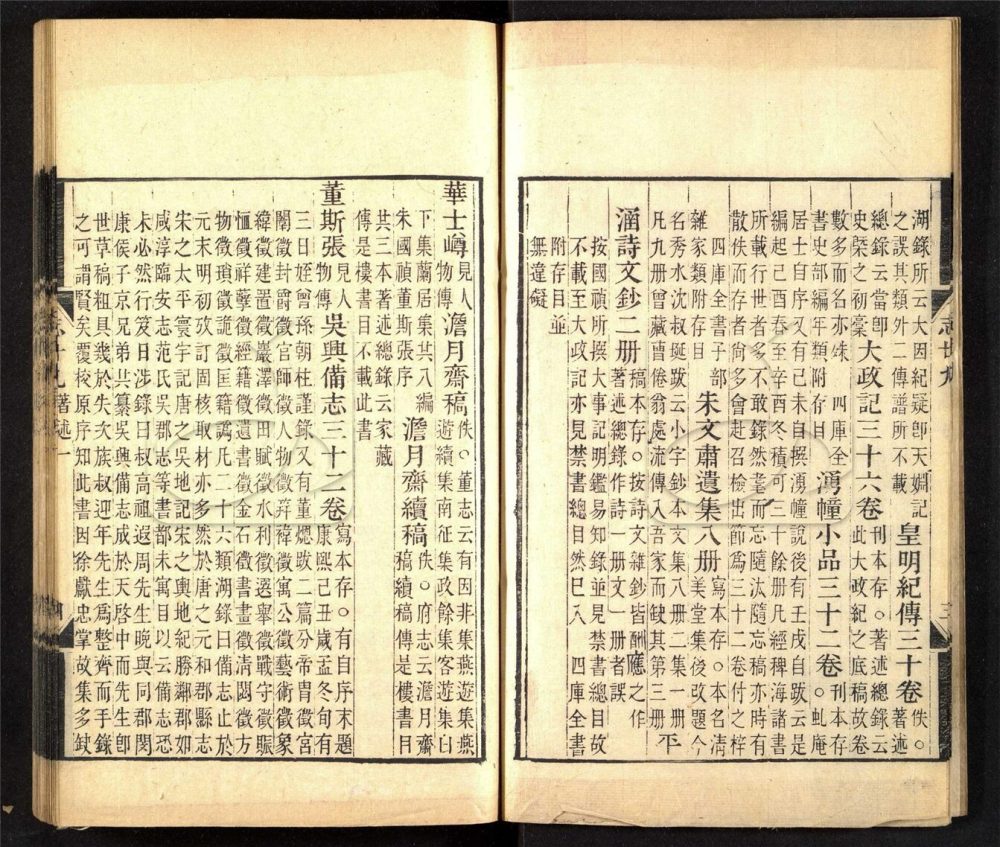 湖錄所云大因紀疑卽天記
之誤其類外二傳譜所不載
皇明紀傳三十卷
佚。
著述
總錄云當卽
史槩之初藁
大政記三十六卷
刊本存。著述總錄云
此大政紀之底稿故卷
數多而名亦殊 四庫全
書史部編年類附存目
湧幢小品三十二卷
刊本存
。虬庵
居士自序又有己未自撰湧幢說後有壬戌自跋云是
編起己酉春至辛酉冬積可三十餘册凡經稗海諸書
所載行世者多不敢錄然耄而忘隨汰隨忘稿亦時有
散佚而存者尙多會赴召檢出節爲三十二卷付之梓
四庫全書子部
雜家類附存目
朱文肅遺集八册
寫本存。本名淸
美堂集後改題今
名秀水沈叔埏跋云小字鈔本文集八册二集一册
凡九册曾藏曹倦翁處流傳入吾家而缺其第三册
平
涵詩文鈔二册
稿本存。按詩文雜鈔皆酬應之作
著述總錄作詩一册文一册者誤
按國禎所撰大事記明鑑易知錄並見禁書總目故
不載至大政記亦見禁書總目然已入 四庫全書
附存目並
無違礙
志
華士㠜
見人
物傳
澹月齋稿
佚。董志云有因非集燕遊集燕
遊續集南征集政餘集客遊集臼
下集蘭居集共八編
朱國禎董斯張序
澹月齋續稿
佚。府志云澹月齋
稿續稿傳是樓書目
共三本著述總錄云家藏
傳是樓書目不載此書
董斯張
見人
物傳
吳興備志三十二卷
寫本存。有自序末題
康熙己丑歲孟冬旬有
三日姪曾孫朝柱謹錄又有董熜敬二篇分帝胄徵宮
闈徵封爵徵官師徵人物徵笄褘徵寓公徵藝術徵象
緯徵建置徵巖澤徵田賦徵水利徵選舉徵戰守徵賑
恤徵祥孽徵經籍徵遺書徵金石徵書畫徵淸閟徵方
物徵瑣徵詭徵匡籍徵爲凡二十六類湖錄曰備志止於
元末明初攷訂固核取材亦多然於唐之元和郡縣志
宋之太平寰宇記唐之吳地記宋之輿地紀勝鄰郡如
咸淳臨安志范氏吳郡志等書都未寓目以故備志恐
未必然行笈日涉錄曰叔高祖遐周先生晚與同郡閔
康侯子京兄弟共纂吳興備志成於天啓中而先生卽
世草稿粗具幾於失次族叔迎年先生爲整齊而手錄
之可謂賢矣覆校原序知此書因徐獻忠掌故集多缺
著述一